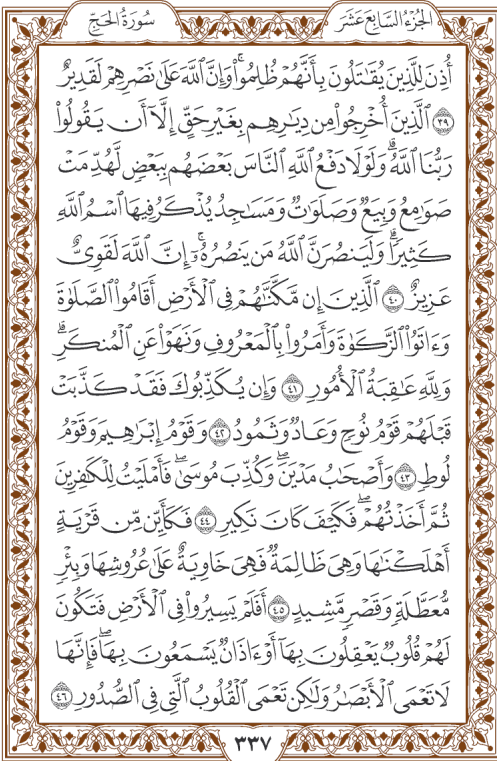 الجزء السابع عشر
سورة الحج
أُذِنَ لِلَّذِينَ يُقَاتَلُونَ بِأَنَّهُمْ ظُلِمُوا۟ ۚ وَإِنَّ ٱللَّهَ عَلَىٰ نَصْرِهِمْ لَقَدِيرٌ
﴿٣٩﴾ ٱلَّذِينَ أُخْرِجُوا۟ مِن دِيَـٰرِهِم بِغَيْرِ حَقٍّ إِلَّآ أَن يَقُولُوا۟
رَبُّنَا ٱللَّهُ ۗ وَلَوْلَا دَفْعُ ٱللَّهِ ٱلنَّاسَ بَعْضَهُم بِبَعْضٍ لَّهُدِّمَتْ
صَوَٰمِعُ وَبِيَعٌ وَصَلَوَٰتٌ وَمَسَـٰجِدُ يُذْكَرُ فِيهَا ٱسْمُ ٱللَّهِ
كَثِيرًا ۗ وَلَيَنصُرَنَّ ٱللَّهُ مَن يَنصُرُهُۥٓ ۗ إِنَّ ٱللَّهَ لَقَوِىٌّ
عَزِيزٌ ﴿٤٠﴾ ٱلَّذِينَ إِن مَّكَّنَّـٰهُمْ فِى ٱلْأَرْضِ أَقَامُوا۟ ٱلصَّلَوٰةَ
وَءَاتَوُا۟ ٱلزَّكَوٰةَ وَأَمَرُوا۟ بِٱلْمَعْرُوفِ وَنَهَوْا۟ عَنِ ٱلْمُنكَرِ ۗ
وَلِلَّهِ عَـٰقِبَةُ ٱلْأُمُورِ ﴿٤١﴾ وَإِن يُكَذِّبُوكَ فَقَدْ كَذَّبَتْ
قَبْلَهُمْ قَوْمُ نُوحٍ وَعَادٌ وَثَمُودُ ﴿٤٢﴾ وَقَوْمُ إِبْرَٰهِيمَ وَقَوْمُ
لُوطٍ ﴿٤٣﴾ وَأَصْحَـٰبُ مَدْيَنَ ۖ وَكُذِّبَ مُوسَىٰ ۖ فَأَمْلَيْتُ لِلْكَـٰفِرِينَ
ثُمَّ أَخَذْتُهُمْ ۖ فَكَيْفَ كَانَ نَكِيرِ ﴿٤٤﴾ فَكَأَيِّن مِّن قَرْيَةٍ
أَهْلَكْنَـٰهَا وَهِىَ ظَالِمَةٌ فَهِىَ خَاوِيَةٌ عَلَىٰ عُرُوشِهَا وَبِئْرٍ
مُّعَطَّلَةٍ وَقَصْرٍ مَّشِيدٍ ﴿٤٥﴾ أَفَلَمْ يَسِيرُوا۟ فِى ٱلْأَرْضِ فَتَكُونَ
لَهُمْ قُلُوبٌ يَعْقِلُونَ بِهَآ أَوْ ءَاذَانٌ يَسْمَعُونَ بِهَا ۖ فَإِنَّهَا
لَا تَعْمَى ٱلْأَبْصَـٰرُ وَلَـٰكِن تَعْمَى ٱلْقُلُوبُ ٱلَّتِى فِى ٱلصُّدُورِ ﴿٤٦﴾
٣٣٧